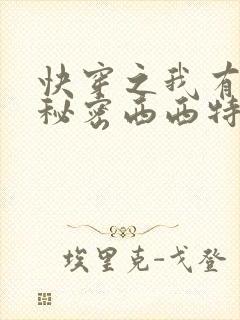 快穿之我有
秘密西西特
埃里克-戈登